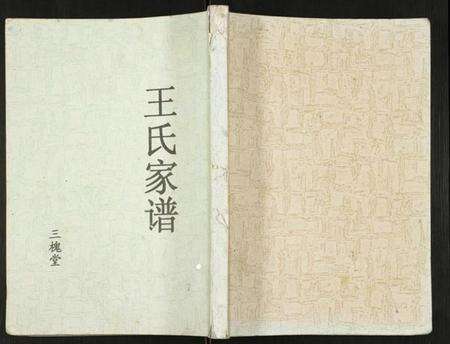 王氏家谱
三槐堂